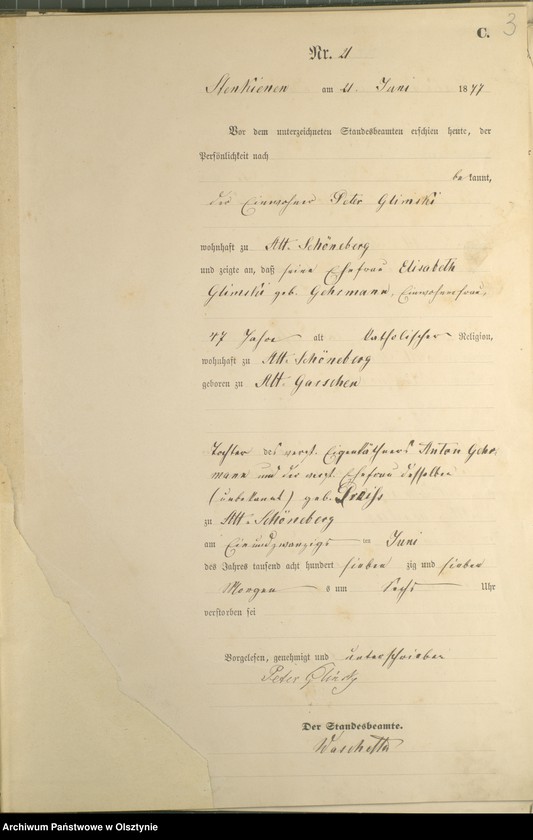 C. 3
Nr. 21
Stenkienen am 21. Juni 1877
Vor dem unterzeichneten Standesbeamten erschien heute, der
Persönlichkeit nach
bekannt,
der Einwohner Peter Glimski
wohnhaft zu Alt-Schöneberg
und zeigte an, daß seine Ehefrau Elisabeth
Glimski geb. Gehrmann, Einwohnerfrau,
47 Jahre alt katholischer Religion,
wohnhaft zu Alt-Schöneberg
geboren zu Alt-Garschen
Tochter des verst. Eigenkäthners Anton Gehr-
mann und der verst. Ehefrau desselben
(unbekannt) geb. Preiss
zu Alt-Schöneberg
am Einundzwanzigs ten Juni
des Jahres tausend acht hundert sieben zig und sieben
Morgen s um Sechs Uhr
verstorben sei
Vorgelesen, genehmigt und unterschrieben
Peter
Der Standesbeamte.
Archiwum Państwowe w Olsztynie